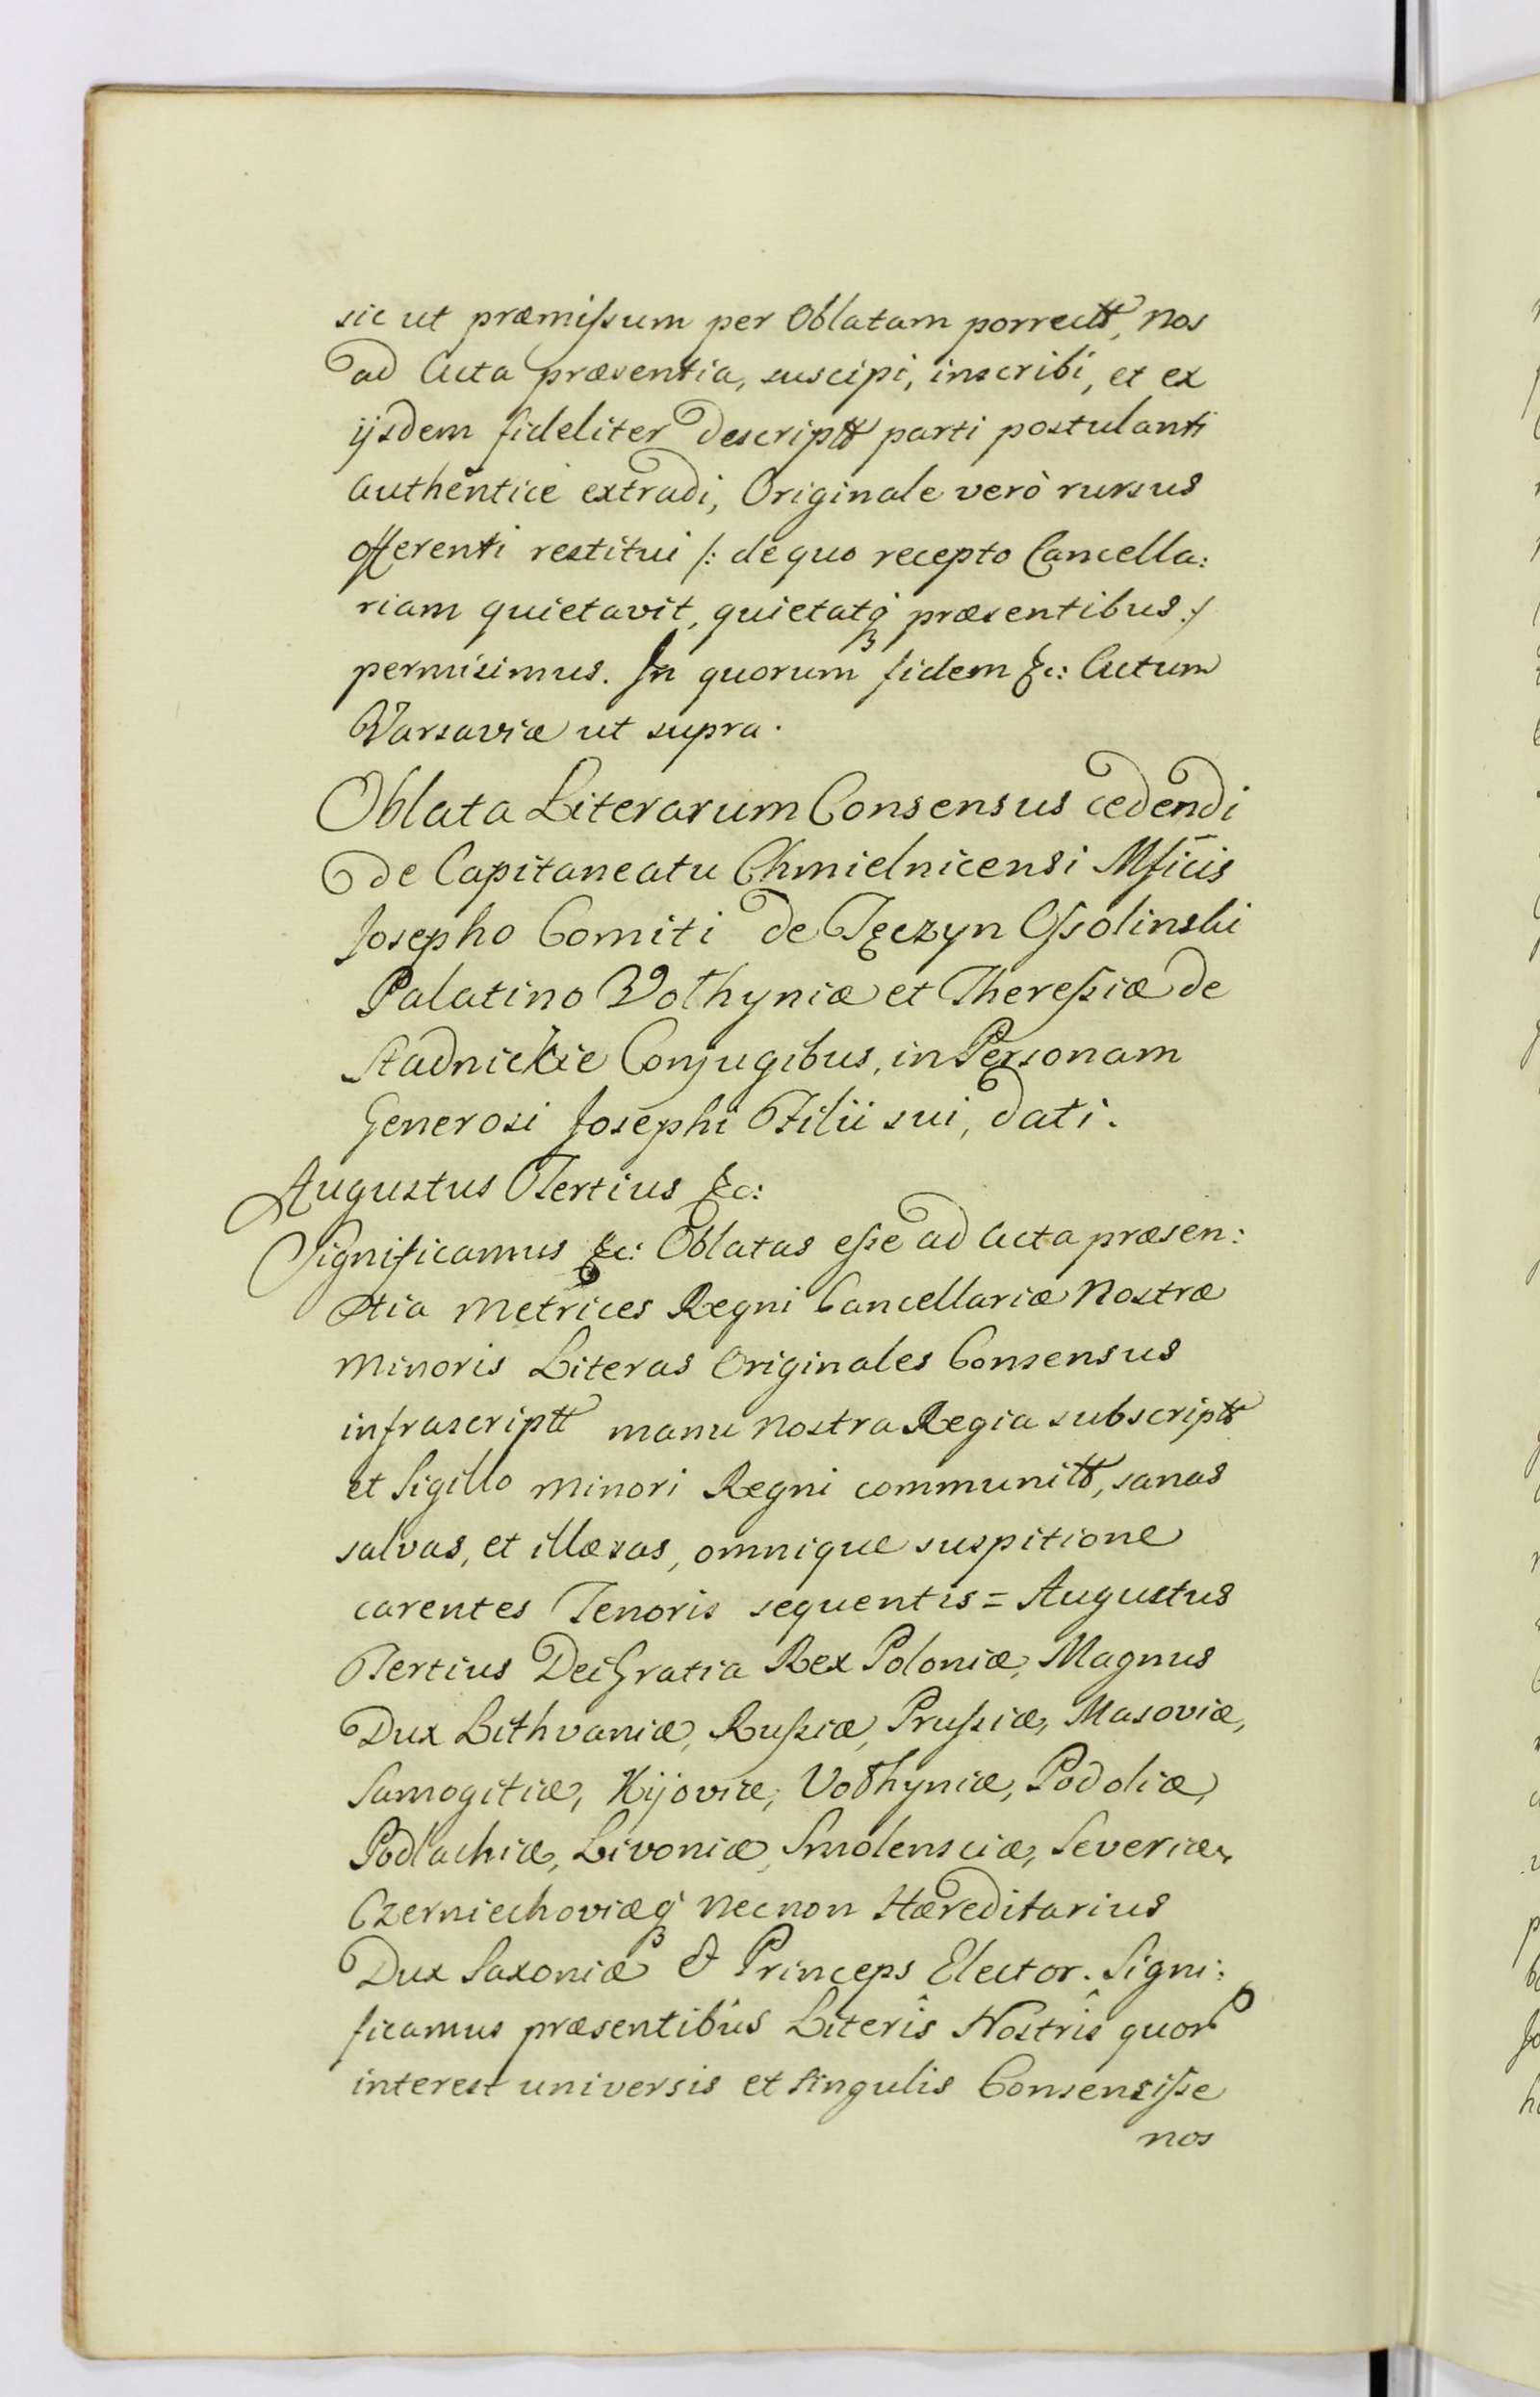 sic ut præmiſsum per Oblatam porrectt, nos
ad Acta præsentia, suscipi, inscribi, et ex
ijsdem fideliter descriptt parti postulanti
authenticè extradi, Originale verò rursus
offerenti restitui /: de quo recepto Cancella:
riam quietavit, quietatq́ præsentibus :/
permisimus. In quorum fidem &c: Actum
Varsaviæ ut supra.
Oblata Literarum Consensus cedendi
de Capitaneatu Chmielnicensi Mficis
Josepho Comiti de Tęczyn Oſsolinski
Palatino Volhyniæ et Thereſsiæ de
Stadnickie Conjugibus, in Personam
Generosi Josephi Filii sui, dati.
Augustus Tertius &c:
Significamus &c: Oblatas eſse ad Acta præsen:
tia Metrices Regni Cancellariæ Nostræ
Minoris Literas Originales Consensus
infrascriptt manu Nostra Regia subscriptt
et Sigillo Minori Regni communitt, sanas
salvas, et illæsas, omnique suspitione
carentes Tenoris sequentis = Augustus
Tertius Dei Gratia Rex Poloniæ, Magnus
Dux Lithvaniæ, Ruſsiæ, Pruſsiæ, Masoviæ,
Samogitiæ, Kijoviæ, Volhyniæ, Podoliæ,
Podlachiæ, Livoniæ, Smolensciæ, Severiæ,
Czerniechoviæq́ Necnon Hæreditarius
Dux Saxoniæ & Princeps Elector. Signi:
ficamus præsentibûs Literîs Nostrîs quor
interest universis et singulis Consensiſse
nos